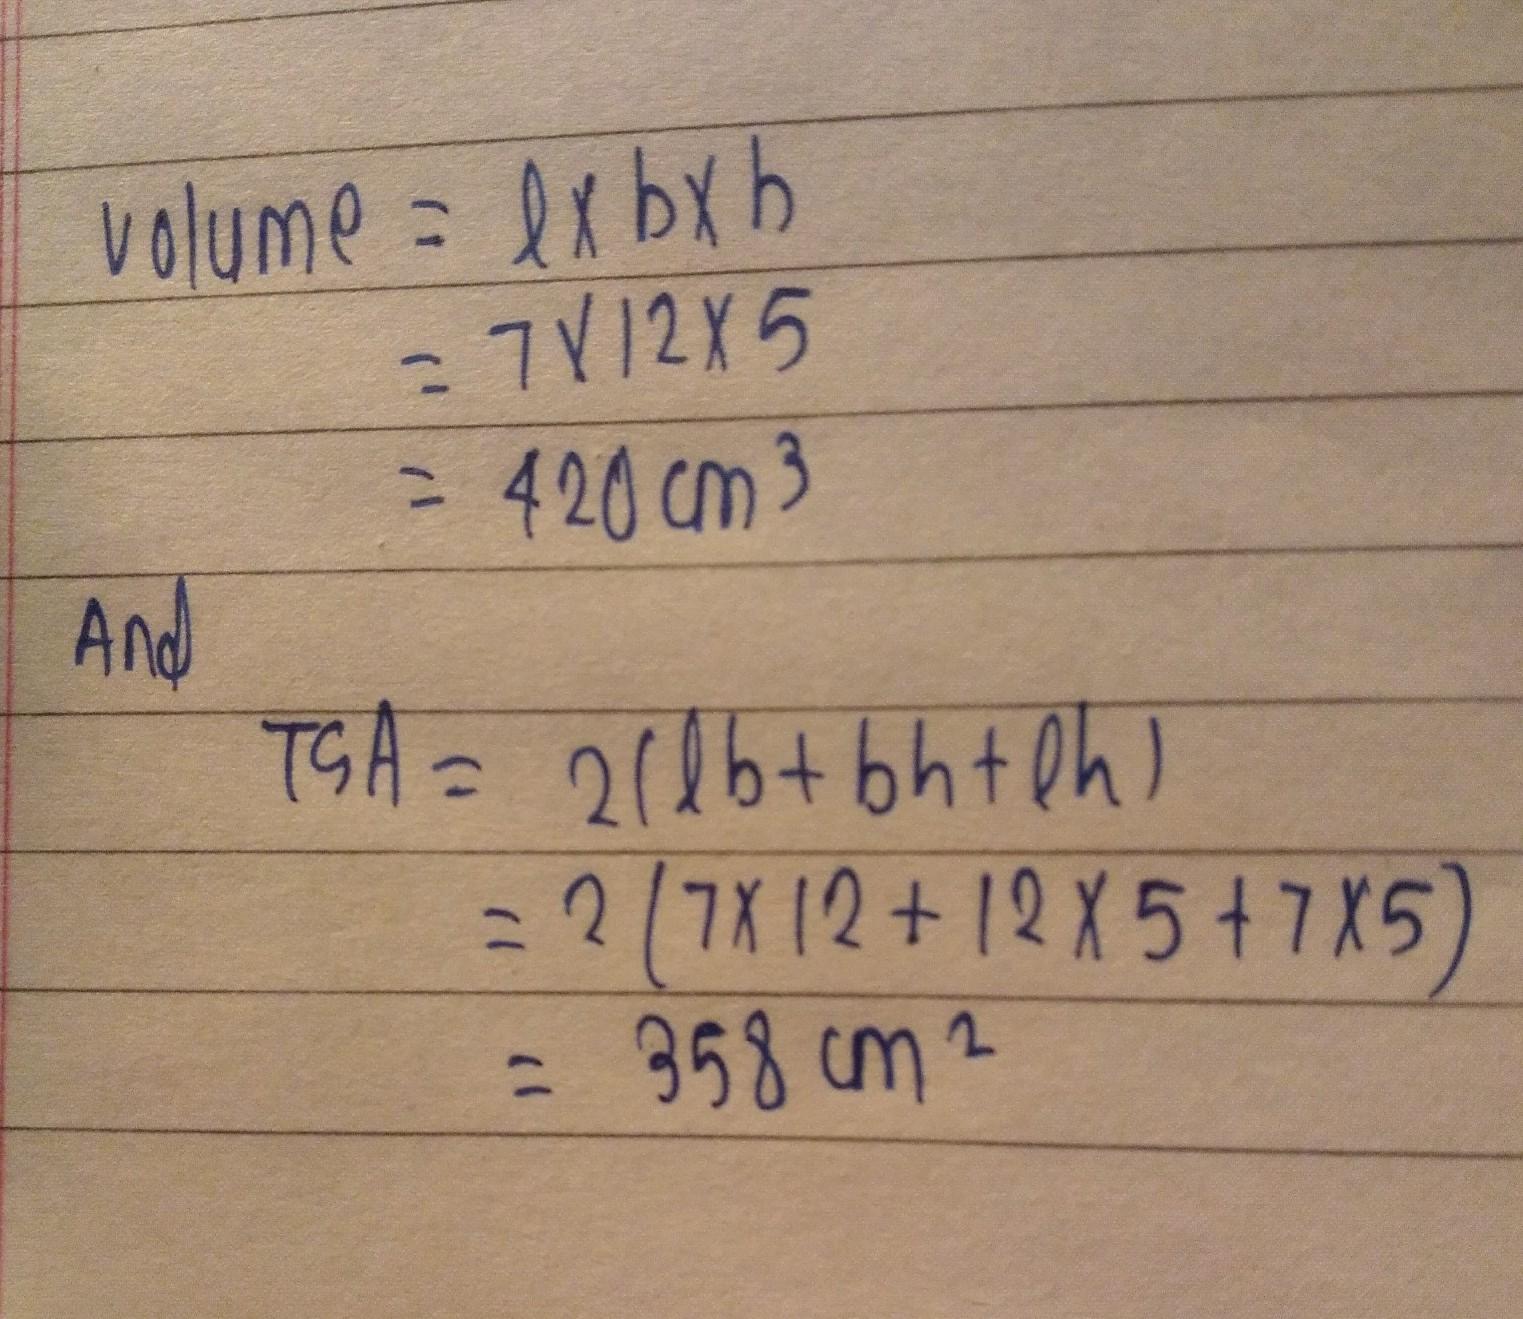 volume = l x b x h
= 7 x 12 x 5
= 420 cm³
And
TSA = 2(lb + bh + lh)
= 2(7 x 12 + 12 x 5 + 7 x 5)
= 358 cm²